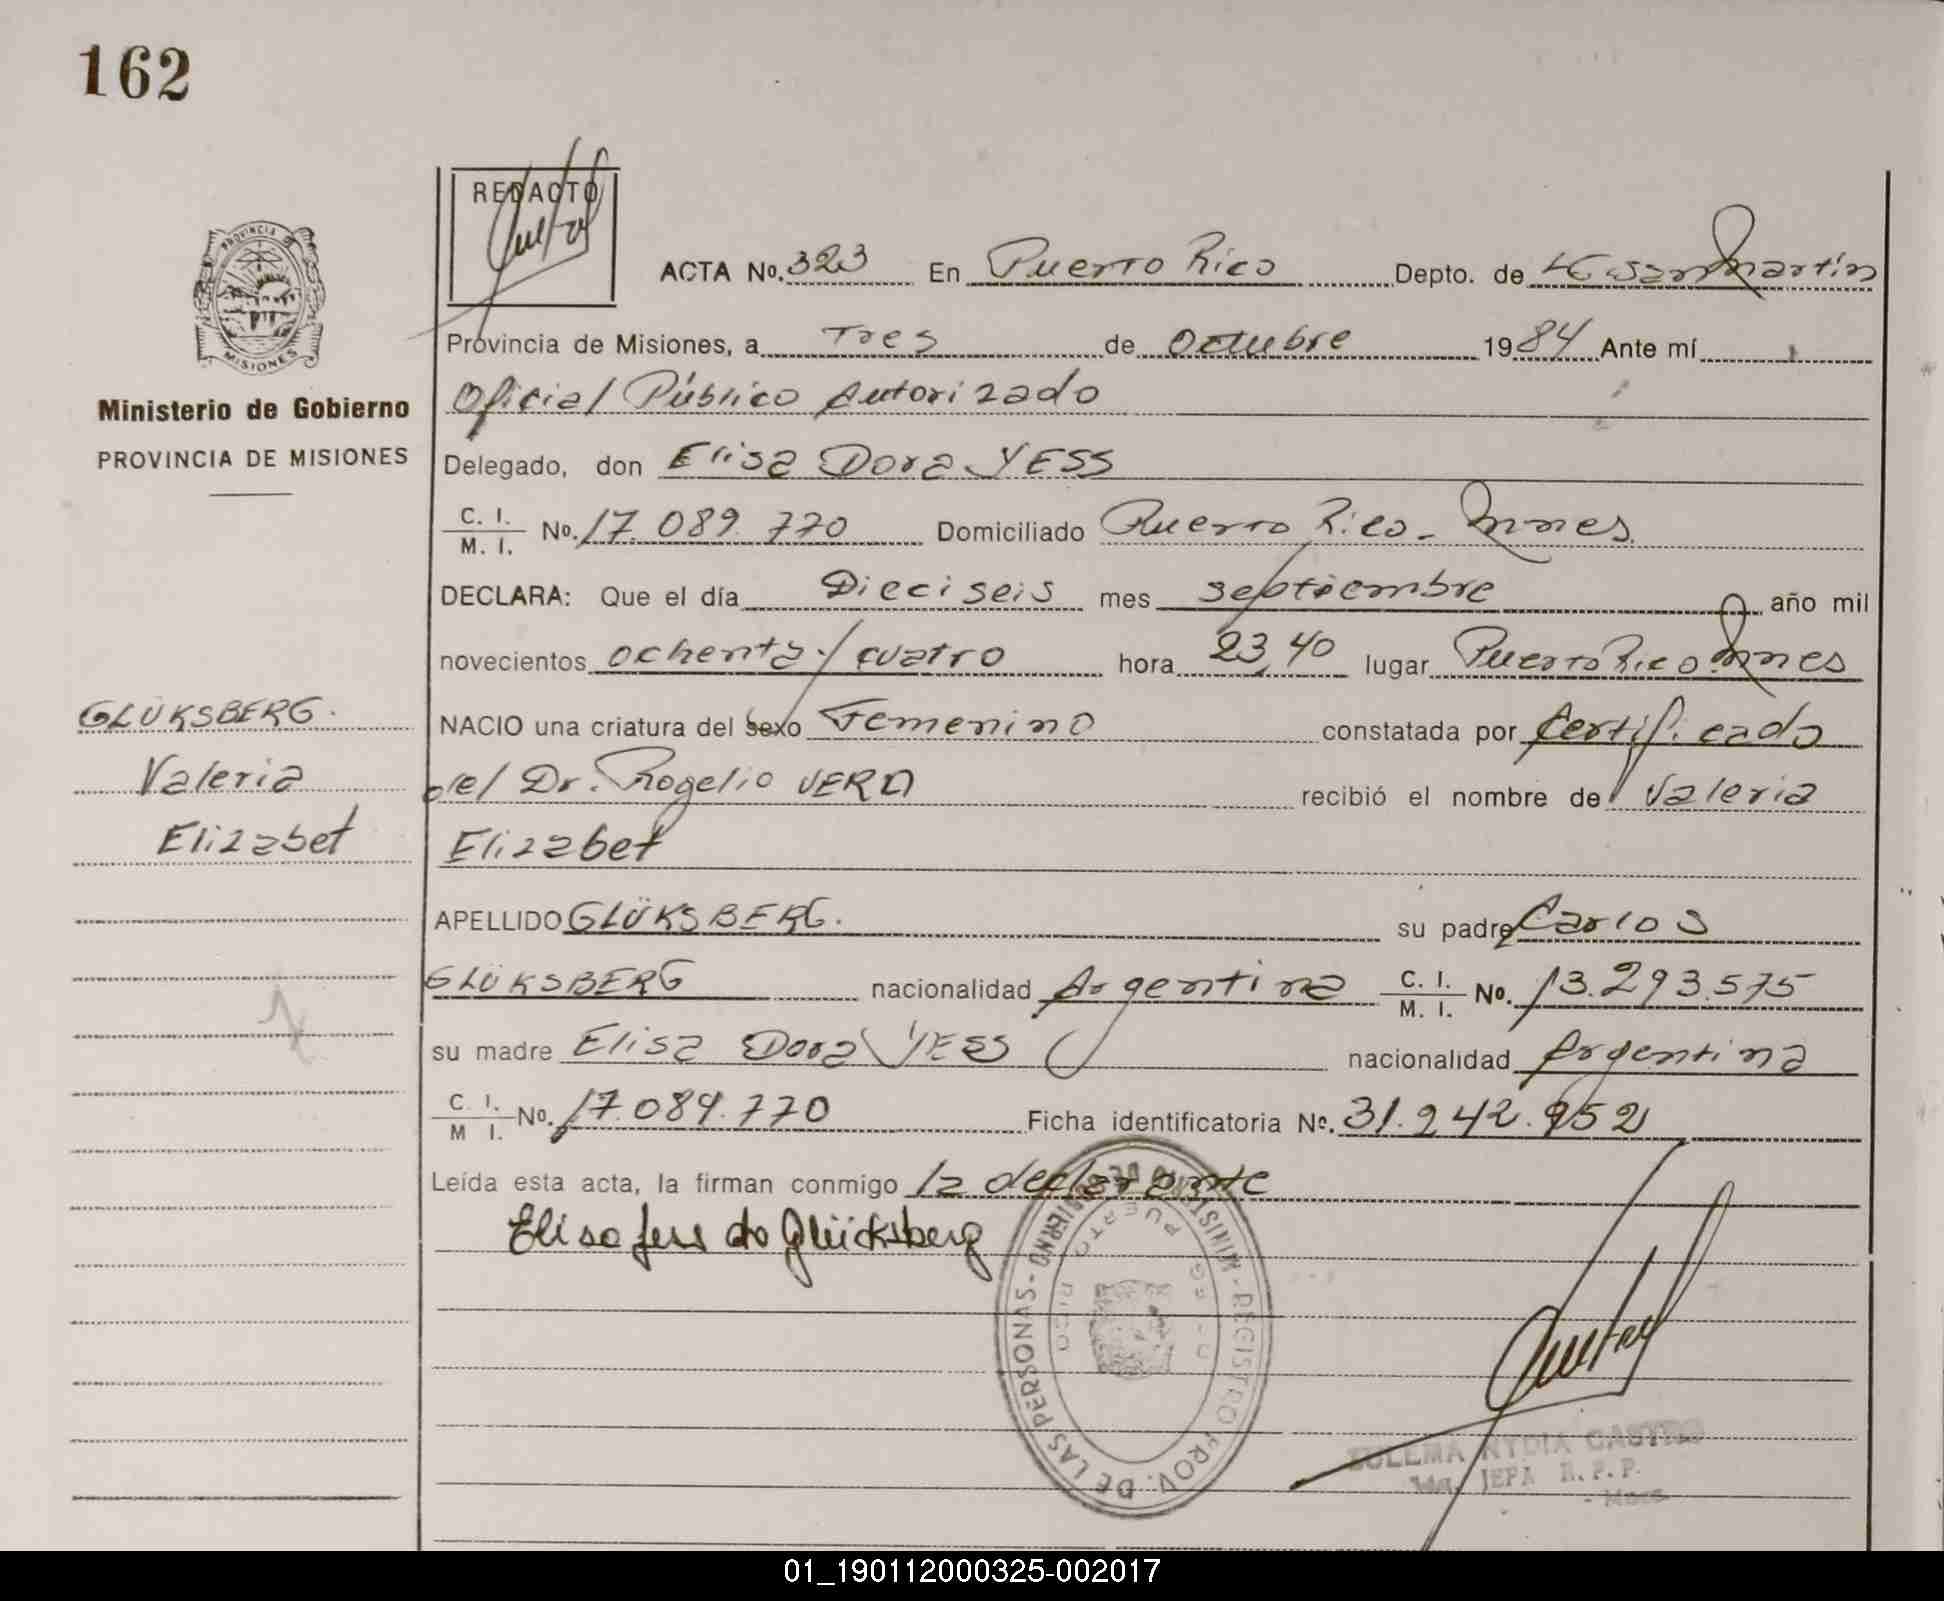 162
REDACTO
ACTA No. 323 En Puerto Rico Depto. de LG San Martín
PROVINCIA DE MISIONES
Provincia de Misiones, a Tres de Octubre 1984 Ante mí
Ministerio de Gobierno
PROVINCIA DE MISIONES
Oficial Público Autorizado
Delegado, don Elisa Dora YESS
C. I. M. I. No. 17.089.770 Domiciliado Puerto Rico - Mnes.
DECLARA: Que el día Dieciseis mes septiembre año mil
novecientos ochenta y cuatro hora 23,40 lugar Puerto Rico Mnes
GLÜKSBERG.
Valeria
Elizabet
NACIO una criatura del sexo Femenino constatada por Certificado
del Dr. Rogelio VERA recibió el nombre de Valeria
Elizabet
APELLIDO GLÜKSBERG. su padre Carlos
GLÜKSBERG nacionalidad Argentina C. I. M. I. No. 13.293.575
su madre Elisa Dora YESS nacionalidad Argentina
C. I. M I. No. 17.089.770 Ficha identificatoria No. 31.242.952
Leída esta acta, la firman conmigo la declarante
Elisa Jess de Glücksberg
MINISTERIO DE GOBIERNO - REGISTRO PROV. DE LAS PERSONAS -
PUERTO RICO
ZULEMA NYDIA CASTRO
JEFA R. P. P.
- Mnes.
01_190112000325-002017